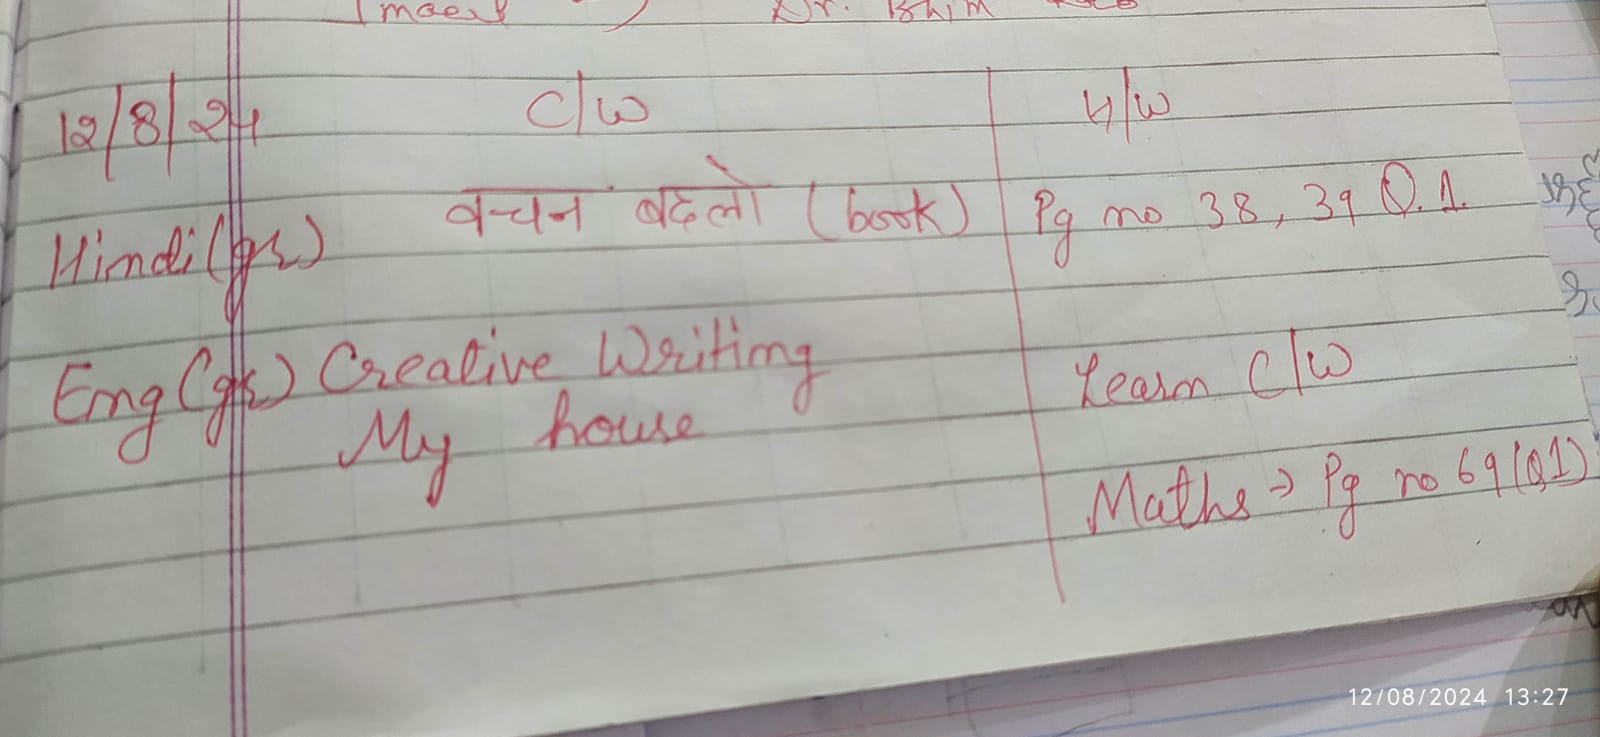 Dr. Bhim
12/8/24 C/W H/W
Hindi (gr) वचन बदलो (book) Pg no 38, 39 Q.1.
Eng (gr) Creative Writing Learn C/W
My house
Maths → Pg no 69 (Q1)
12/08/2024 13:27